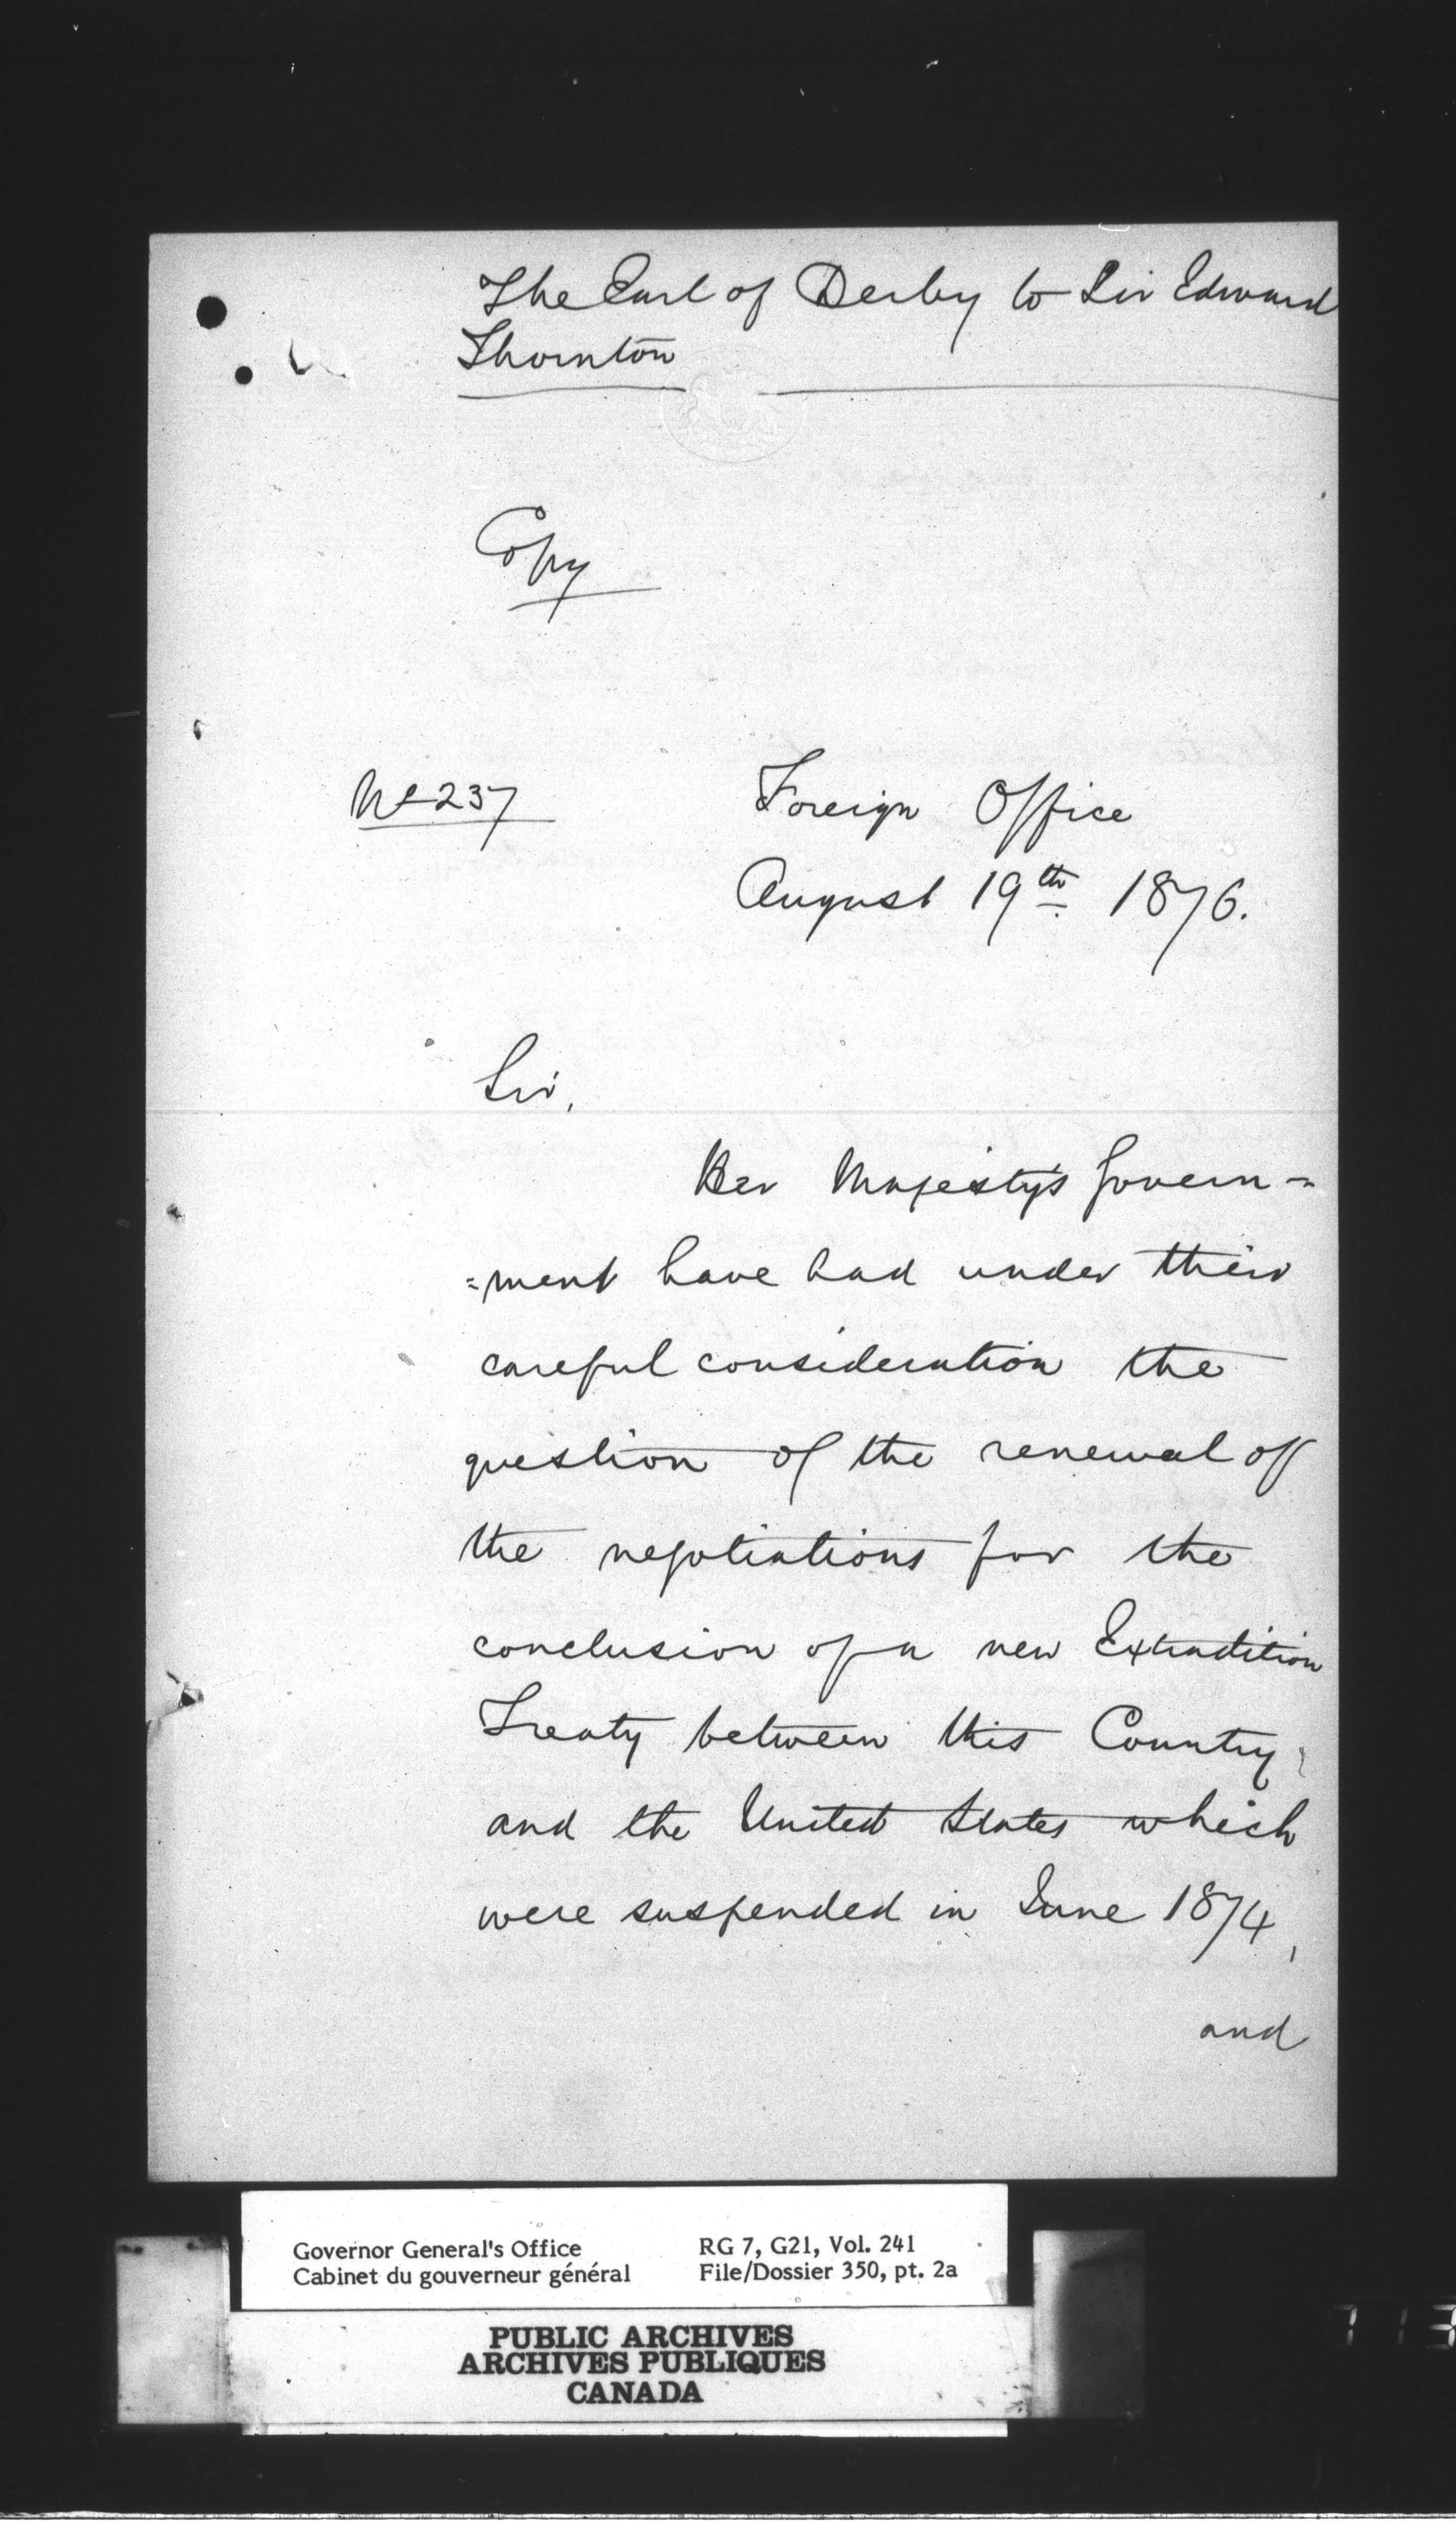 The Earl of Derby to Sir Edward
Thornton
Copy
No 237
Foreign Office
August 19th 1876.
Sir,
Her Majesty's Govern=
=ment have had under their
careful consideration the
question of the renewal of
the negotiations for the
conclusion of a new Extradition
Treaty between this Country
and the United States which
were suspended in June 1874,
and
Governor General's Office
Cabinet du gouverneur général
RG 7, G21, Vol. 241
File/Dossier 350, pt. 2a
PUBLIC ARCHIVES
ARCHIVES PUBLIQUES
CANADA
713